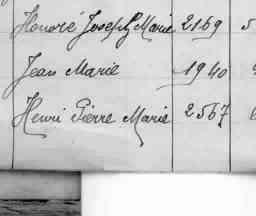 Honoré Joseph Marie 2169 5
Jean Marie 1940
Henri Pierre Marie 2567